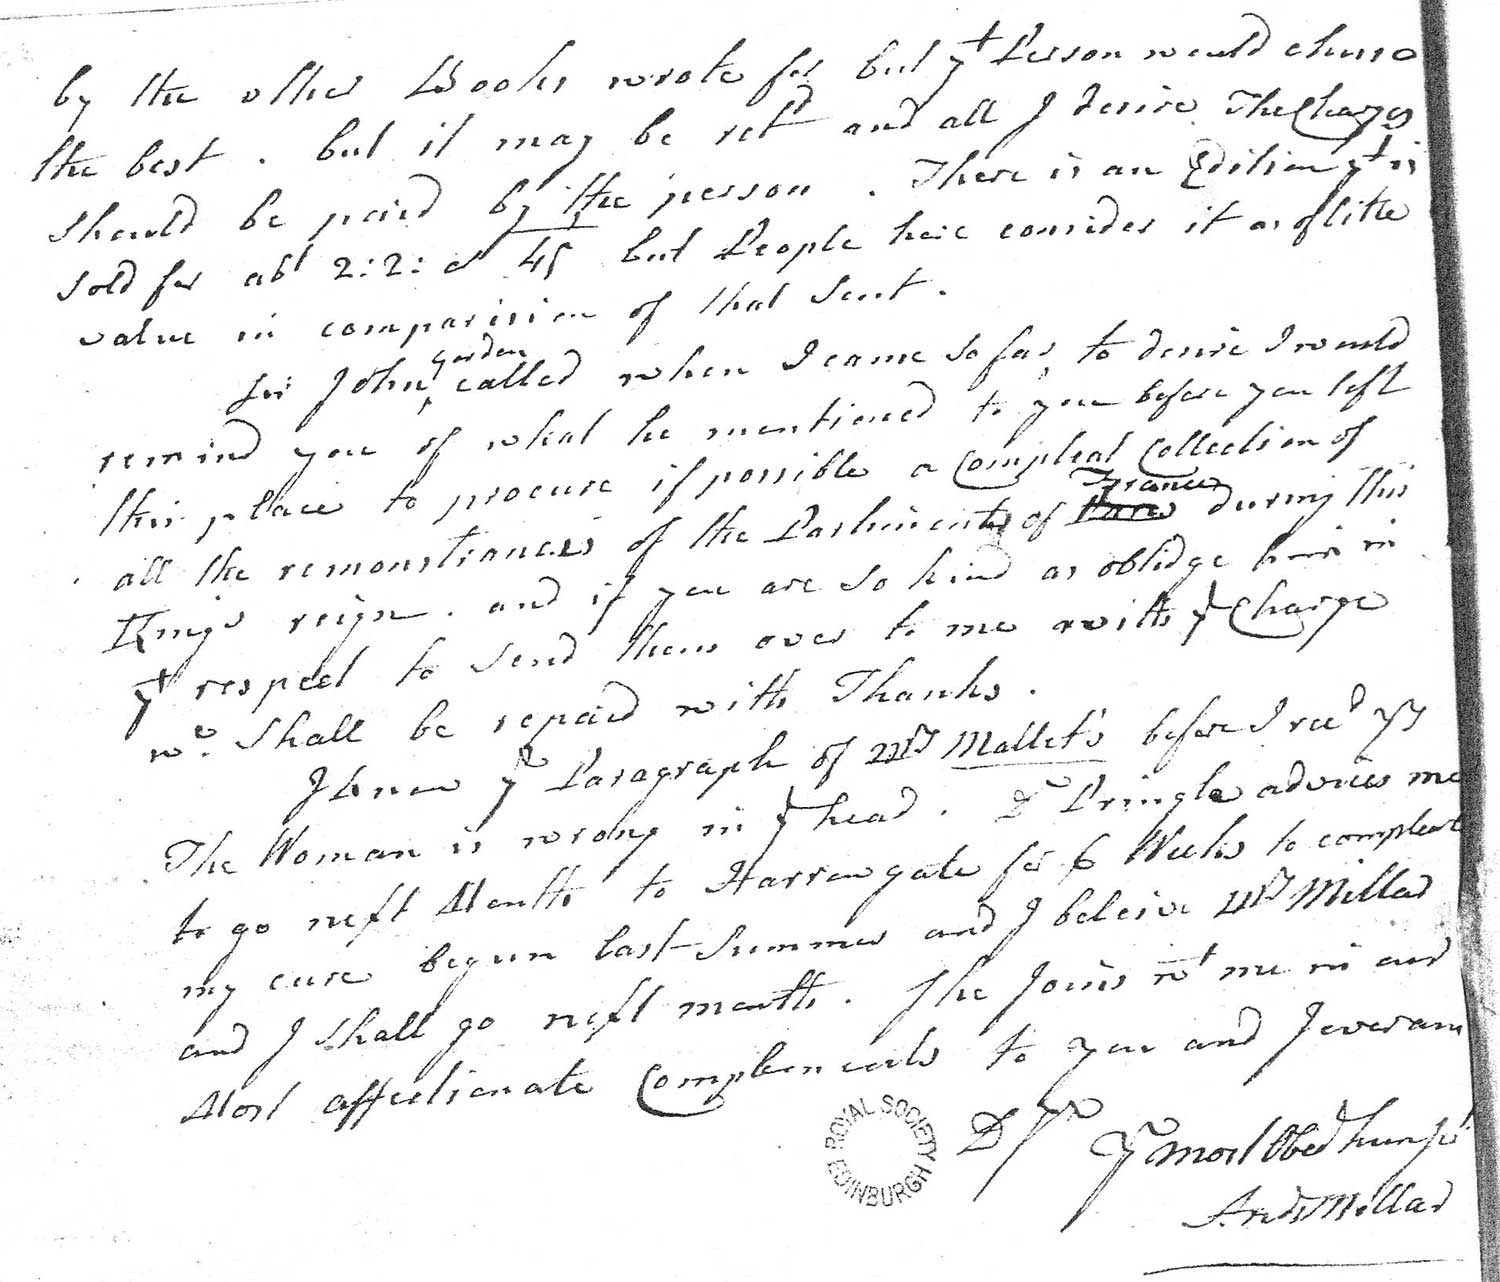 by the other Books wrote for but yt Person would chuse
the best. but it may be retd and all I desire The Charges
should be paid by the person. There is an Edition yt is
sold for abt 2:2: or 45 but People here consider it as of litle
value in comparision of that sent.
Sir John gordon called when I came so far, to desire I would
remind you of what he mentioned to you before you left
this place to procure if possible a Compleat Collection of
all the remonstrances of the Parliments of France during this
Kings reign. and if you are so kind as oblidge him in
yt respect to send them over to me with ye Charge
wc. shall be repaid with Thanks.
I knew ye Paragraph of Mrs Mallet's before I recd yrs
The Woman is wrong in ye head. Dr Pringle advices me
to go next Month to Harrowgate for 6 Weeks to compleat
my cure begun last Summer and I beleive Mrs Millar
and I shall go next month. She Joins wt me in our
Most affectionate Complements to you and I ever am
D Sr
Yr most Obed hum St
And Millar
ROYAL SOCIETY EDINBURGH